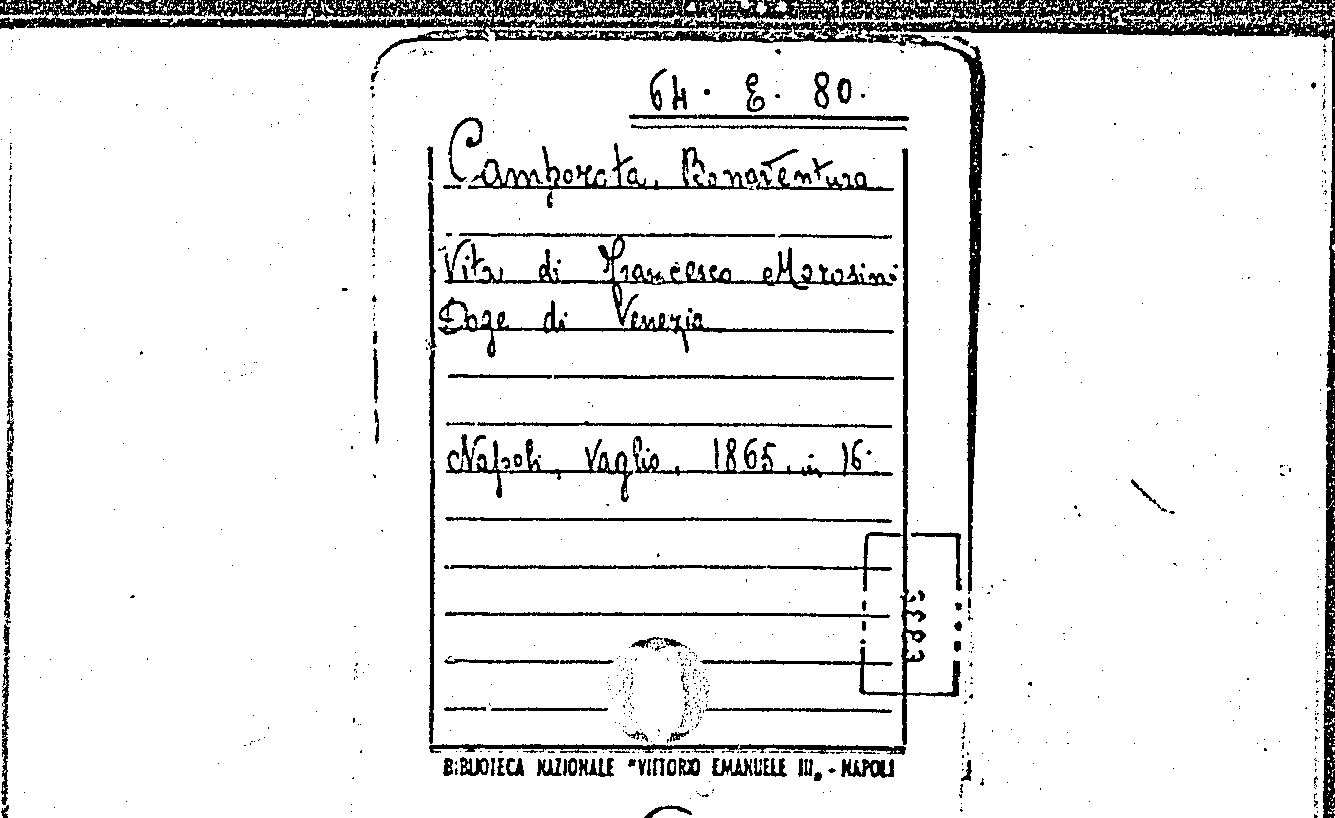 64. E. 80.
Camporota, Bonaventura
Vita di Francesco Morosini
Doge di Venezia
Napoli, Vaglio, 1865, in 16.
BIBLIOTECA NAZIONALE "VITTORIO EMANUELE III„ - NAPOLI